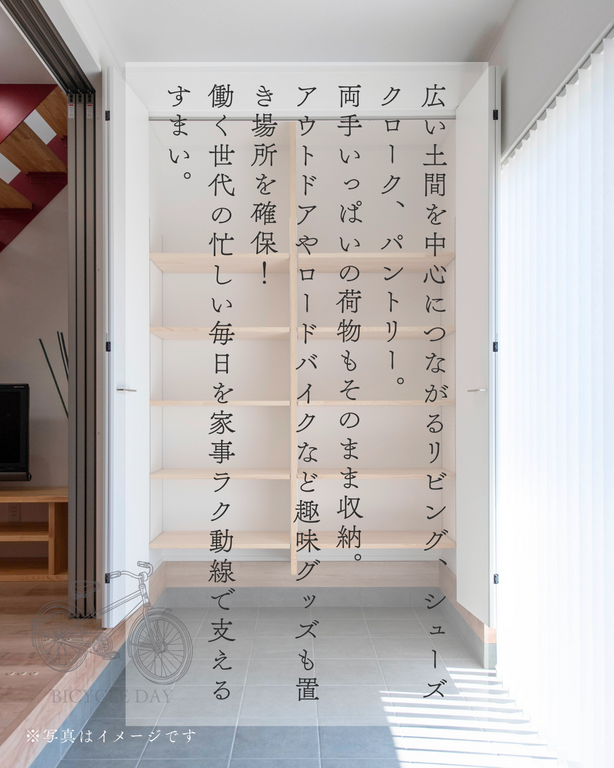 広い土間を中心につながるリビング、シューズ
クローク、パントリー。
両手いっぱいの荷物もそのまま収納。
アウトドアやロードバイクなど趣味グッズも置
き場所を確保！
働く世代の忙しい毎日を家事ラク動線で支える
すまい。
BICYCLE DAY
※写真はイメージです